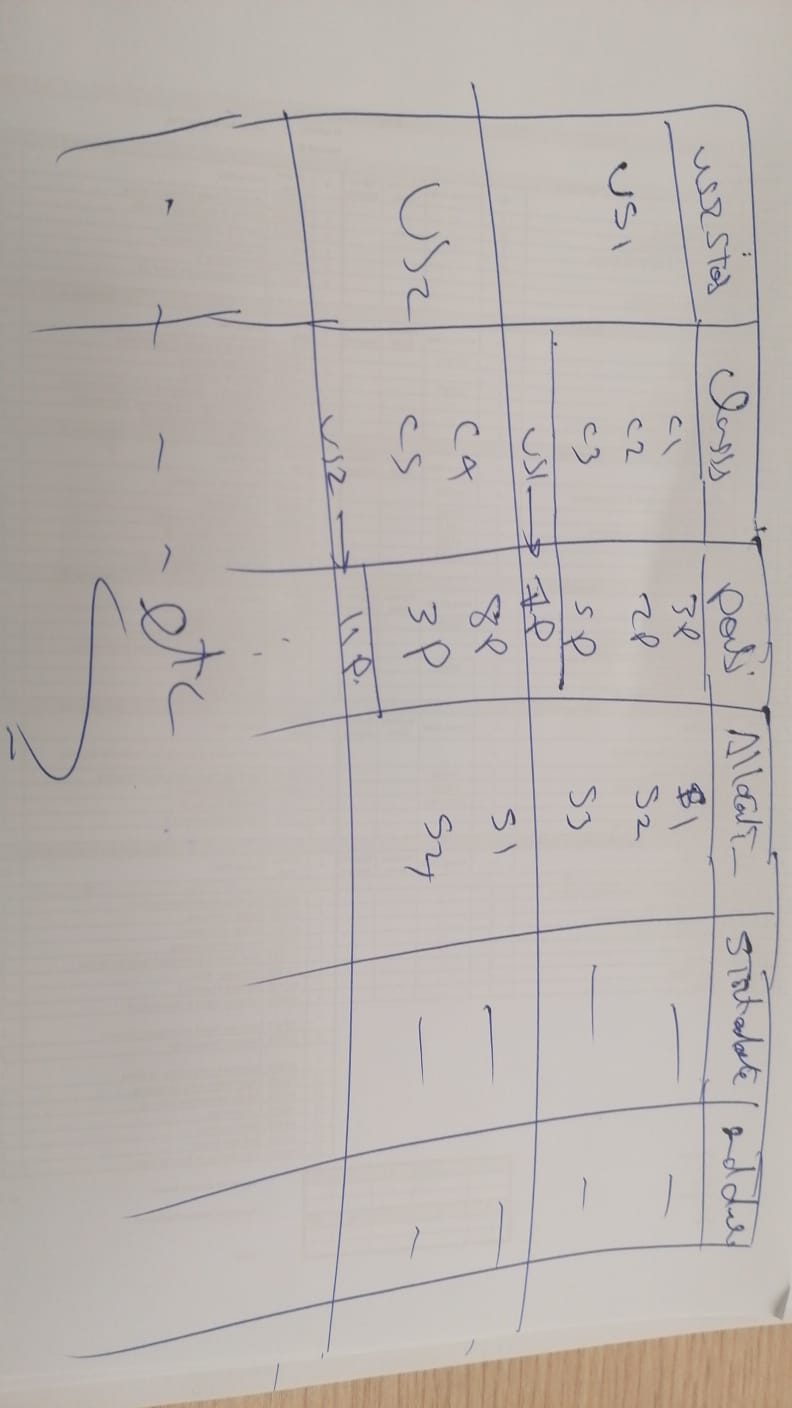 Classes Points Allocati_ Start date / end date
US1 C1 3P S1
C2 2P S2
C3 5P S3
US1 → P
US2 C4 8P S1
C5 3P S4
US2 → 11 P.
etc